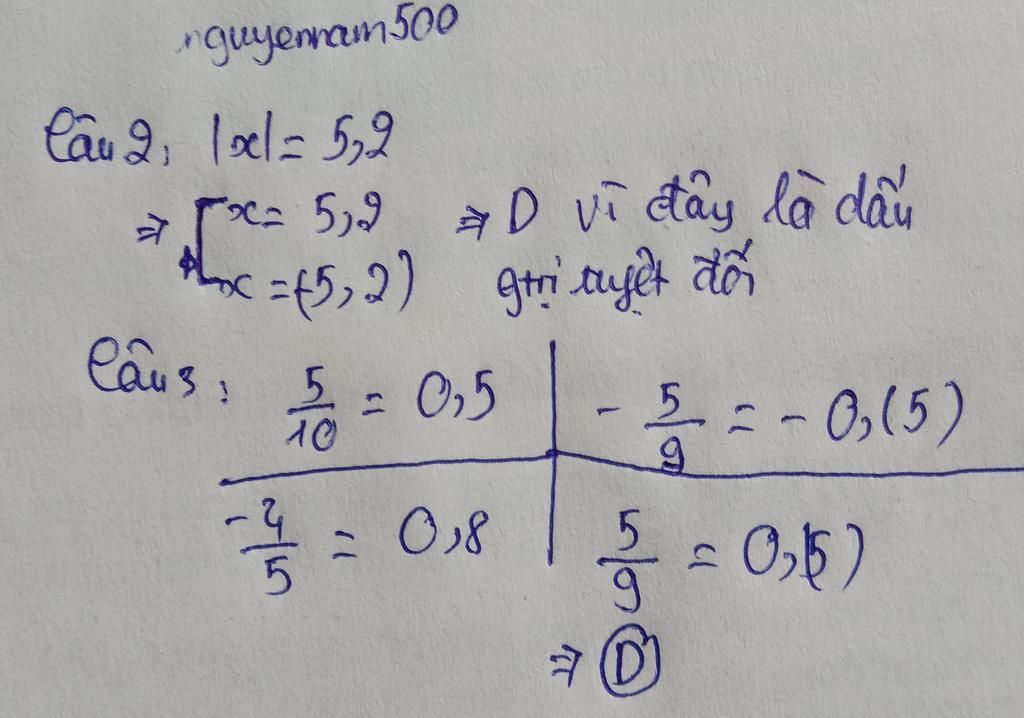 nguyennam500
Câu 2, |x| = 5,2
⇒ [ x = 5,2 ⇒ D vì đây là dấu
x = (-5,2) gtrị tuyệt đối
Câu 3: 5/10 = 0,5 | - 5/9 = - 0,(5)
-4/5 = 0,8 | 5/9 = 0,(5)
⇒ D